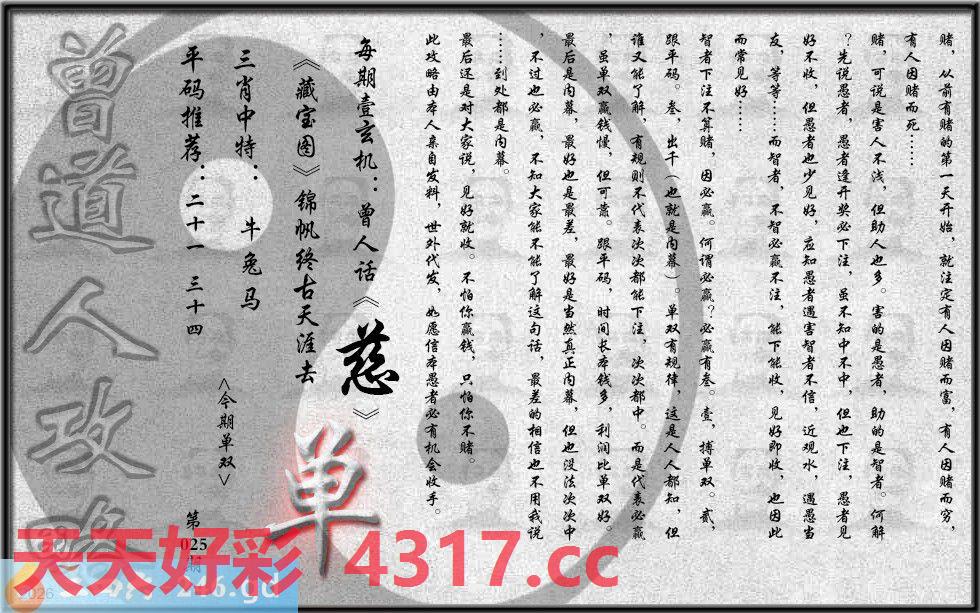 赌，从前有赌的第一天开始，就注定有人因赌而富，有人因赌而穷，
有人因赌而死……
赌，可说是害人不浅，但助人也多。害的是愚者，助的是智者。何解
？先说愚者，愚者逢开奖必下注，虽不知中不中，但也下注，愚者见
好不收，但愚者也少见好，应知愚者遇害智者不信，近观水，遇愚当
友，等等……而智者，不智必赢不注，能下能收，见好即收，也因此
而常见好……
智者下注不算赌，因必赢。何谓必赢？必赢有叁。壹，搏单双。贰，
跟平码。叁，出千（也就是内幕）。单双有规律，这是人人都知，但
谁又能了解，有规则不代表次次都能下注，次次都中。而是代表必赢
，虽单双赢钱慢，但可靠。跟平码，时间长本钱多，利润比单双好。
最后是内幕，最好也是最差，最好是当然真正内幕，但也没法次次中
，不过也必赢，不知大家能不能了解这句话，最差的相信也不用我说
……到处都是内幕。
最后还是对大家说，见好就收。不怕你赢钱，只怕你不赌。
此攻略由本人亲自发料，世外代发，如愿信本愚者必有机会收手。
每期壹玄机：曾人话《慈》
《藏宝图》锦帆终古天涯去
三肖中特：牛兔马
平码推荐：二十一 三十四
<今期单双>
单
第025期
曾道人攻略
天天好彩 4317.cc